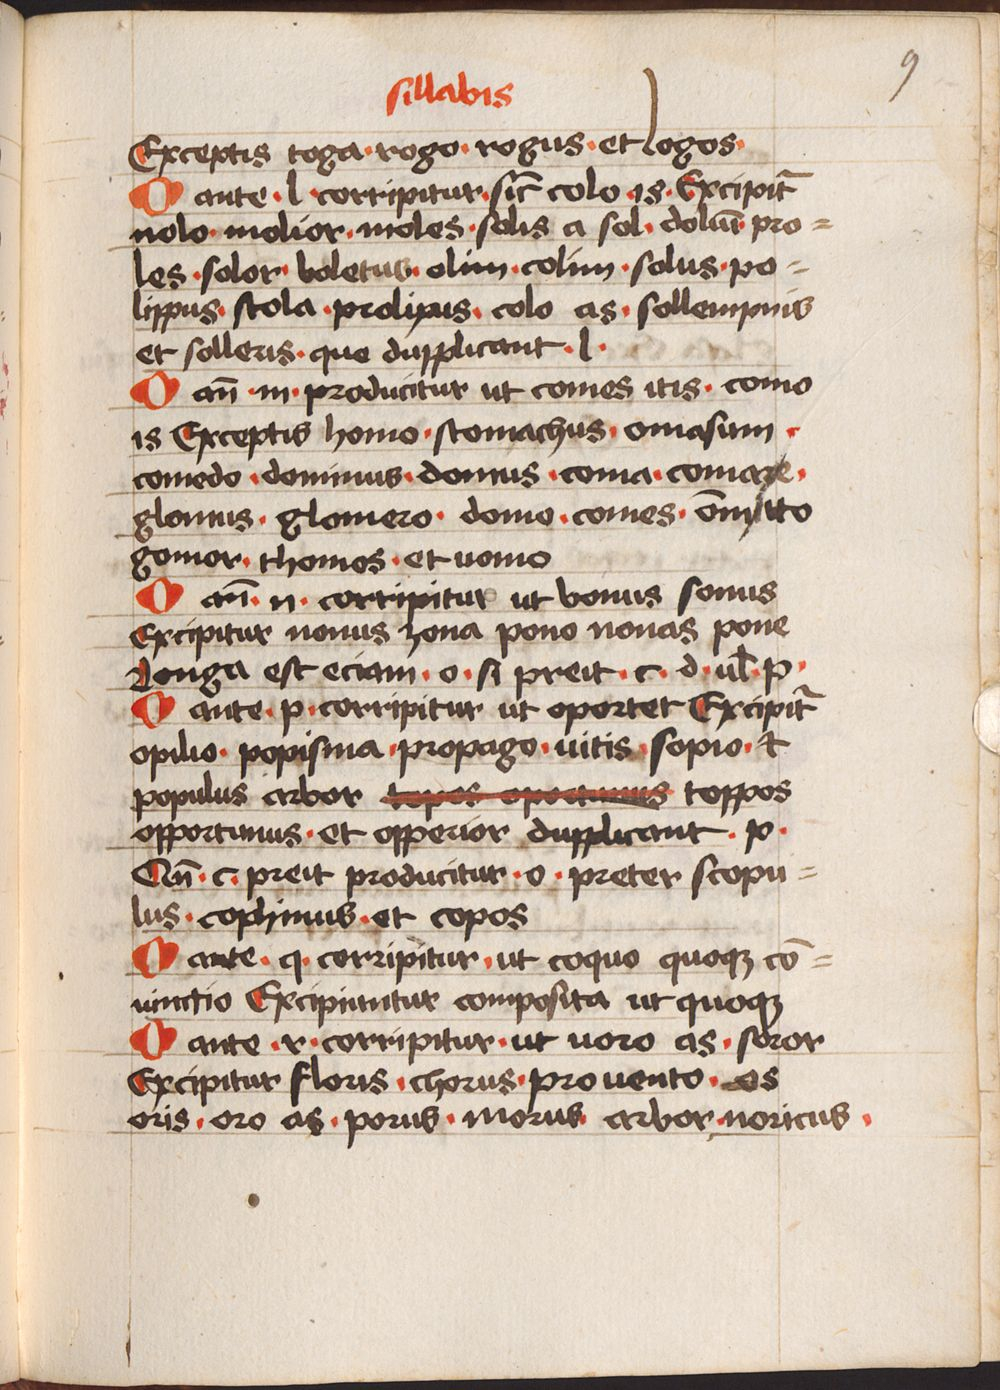 9
sillabis
Exceptis toga · rogo · rogus · et logos ·
O ante · l · corripitur · sic̄ colo · is · Excipit̄
nolo · molior · moles · solis a sol · doluāt pro=
les · solor · boletus · olim · colim · solus · po=
lippus · stola · prolipus · colo as · sollempnis
et solleris · que dupplicant · l ·
O an̄ · m · producitur ut comes itis · como
is Exceptis homo · stomachus · omasum ·
comedo · dominus · domus · coma · comaze ·
glomus · glomero · domo · comes · om̄itto
gomor · thomos · et uomo
O an̄ · n · corripitur ut bonus sonus
Excipitur nonus zona pono nonas pone
Longa est eciam · o · si preit · c · d · ul̄ · p ·
O ante · p · corripitur ut oportet Excipit̄
opilio · popisma · propago · uitis · sopio · et
populus arbor topos oportunus toppos
opportunus · et opperior dupplicant · p ·
Cun̄ · c · preit producitur · o · preter scopu=
lus · cophinus · et copos
O ante · q · corripitur · ut coquo quoqꝫ cō=
iunctio Excipiuntur composita ut quoqꝫ
O ante · r · corripitur · ut uoro as · soror
Excipitur floris · chorus · pro uento · os
oris · oro as · porus · morus arbor · noricus ·